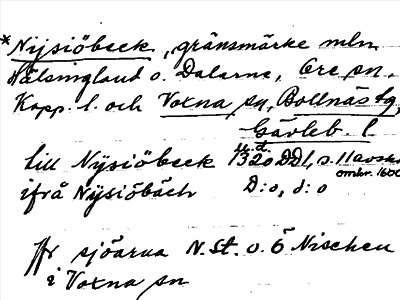 *Nysiöbeck, gränsmärke mln
Hälsingland o. Dalarne, Ore sn,
Kopp. l. och Voxna sn, Bollnäs tg,
Gävleb. l.
till Nysiöbeck u.d. 1320 DD1, s. 11 avskr. omkr. 1600
ifrå Nysiöbäck D:o, d:o
Fr sjöarna N. St. o. Ö Nischen
i Voxna sn